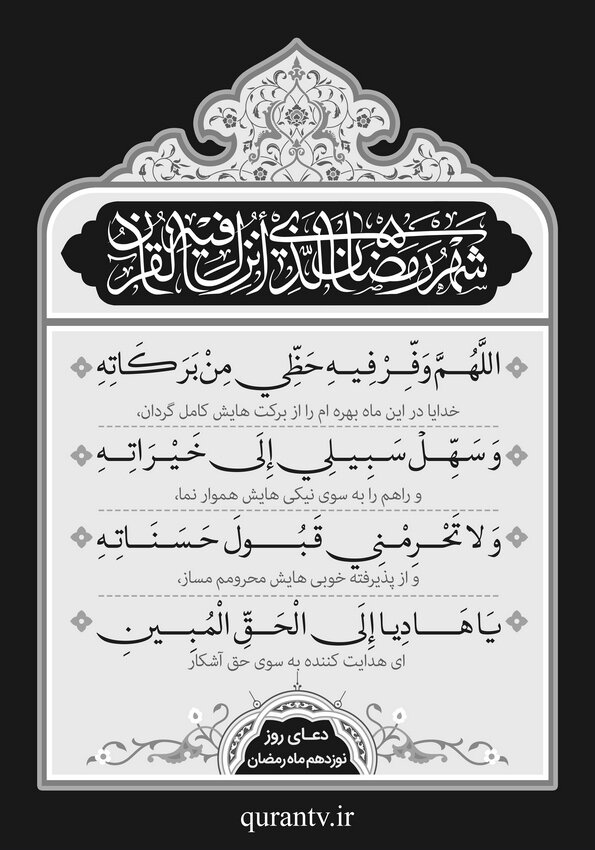 شَهْرُ رَمَضَانَ الَّذِي أُنْزِلَ فِيهِ الْقُرْآنُ
اللَّهُمَّ وَفِّرْ فِيهِ حَظِّي مِنْ بَرَكَاتِهِ
خدایا در این ماه بهره ام را از برکت هایش کامل گردان،
وَ سَهِّلْ سَبِيلِي إِلَى خَيْرَاتِهِ
و راهم را به سوی نیکی هایش هموار نما،
وَ لا تَحْرِمْنِي قَبُولَ حَسَنَاتِهِ
و از پذیرفته خوبی هایش محرومم مساز،
يَا هَادِيا إِلَى الْحَقِّ الْمُبِينِ
ای هدایت کننده به سوی حق آشکار
دعـای روز
نوزدهم ماه رمضان
qurantv.ir